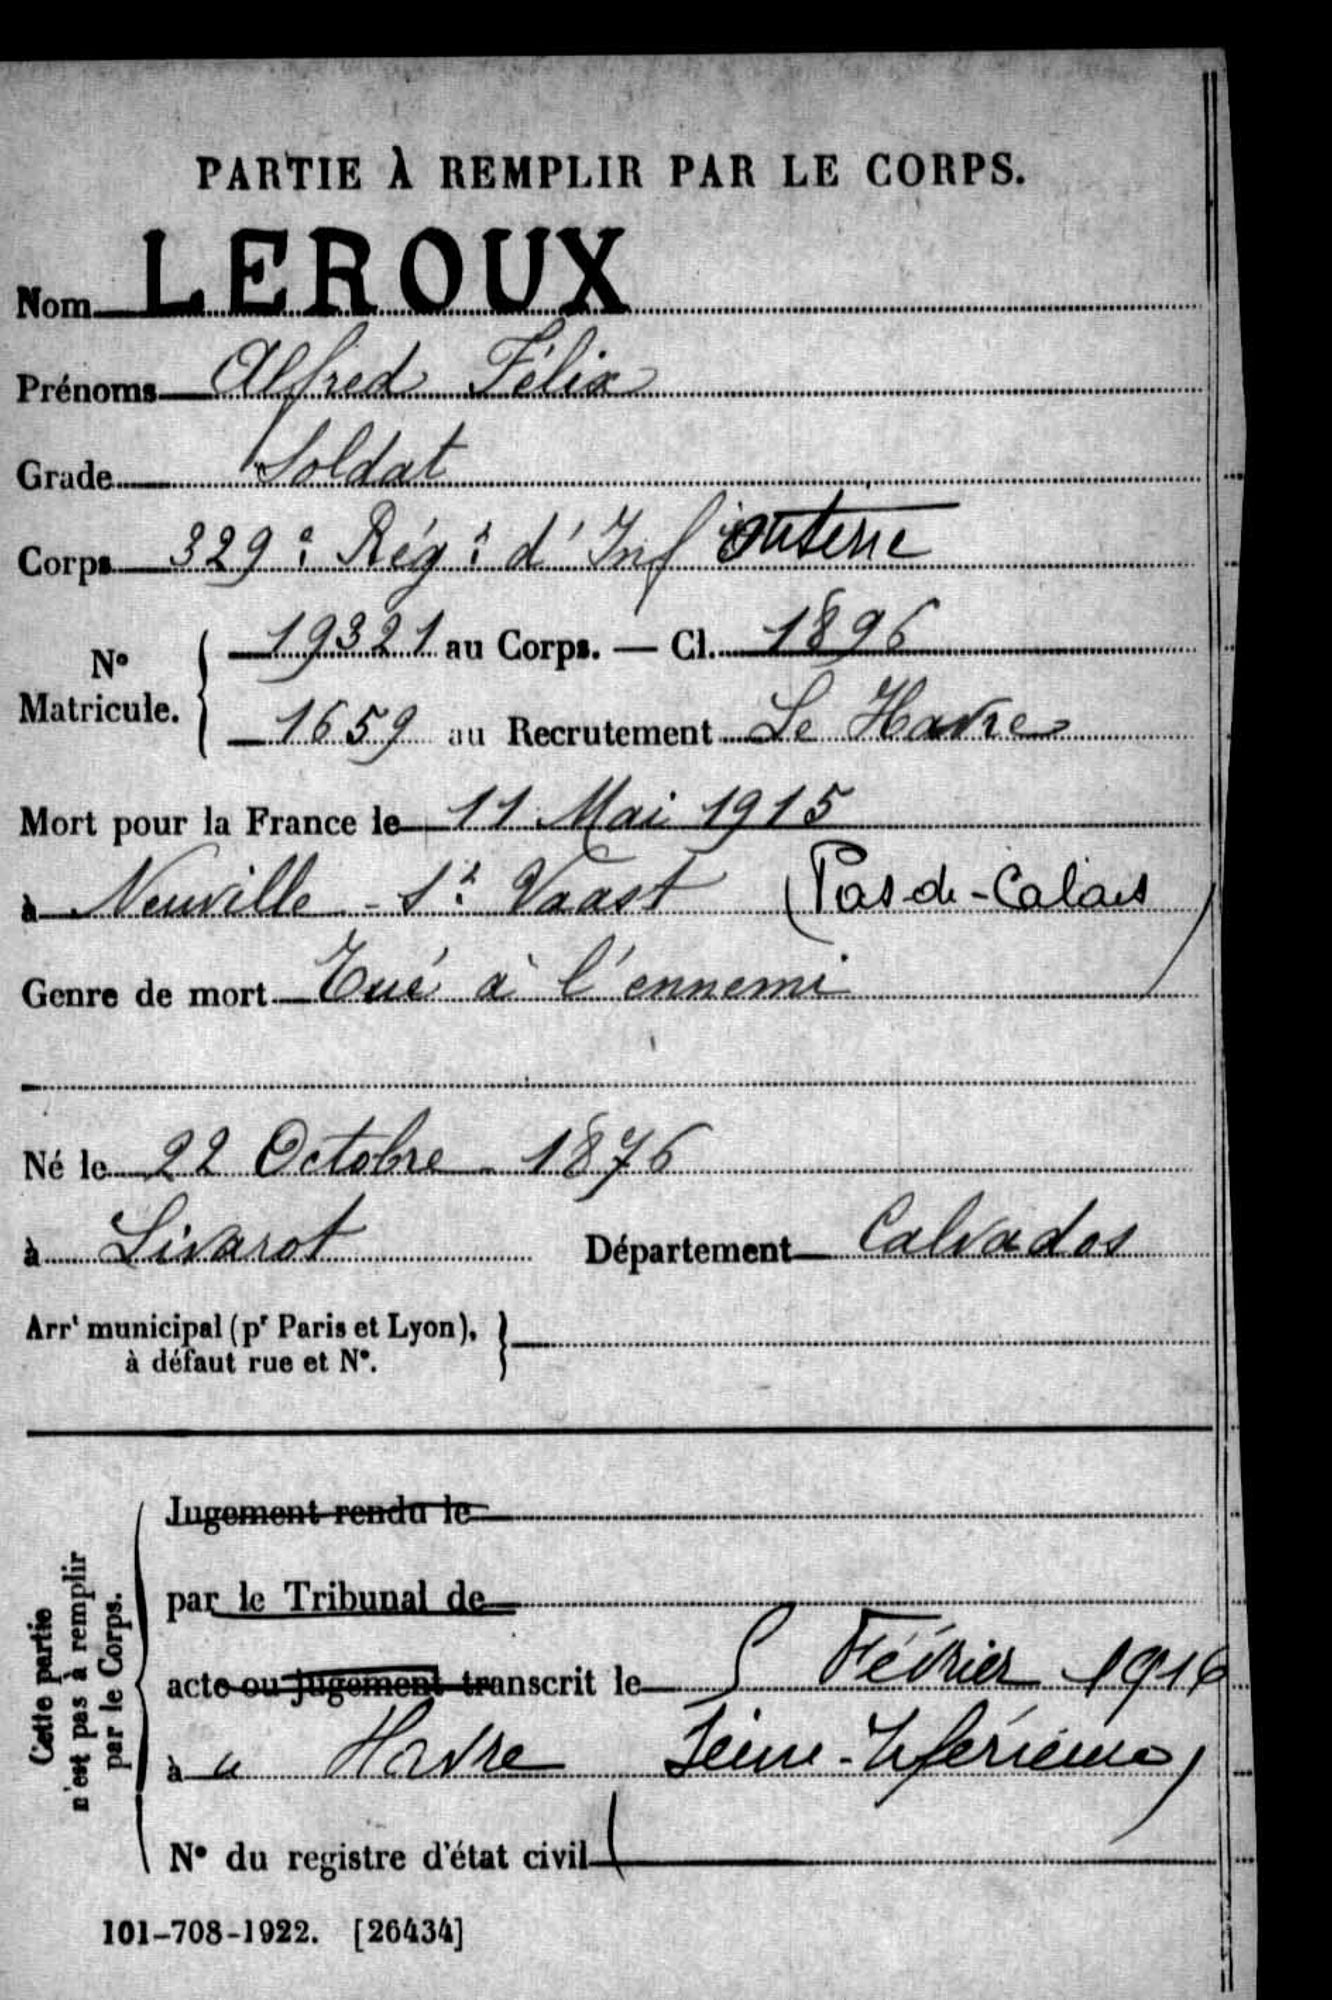 PARTIE À REMPLIR PAR LE CORPS.
Nom LEROUX
Prénoms Alfred Félix
Grade Soldat
Corps 329e Régt d'Infanterie
N° Matricule. 19321 au Corps. — Cl. 1896
1659 au Recrutement Le Havre
Mort pour la France le 11 Mai 1915
à Neuville - St Vaast (Pas-de-Calais)
Genre de mort Tué à l'ennemi
Né le 22 Octobre 1876
à Livarot Département Calvados
Arrt municipal (pr Paris et Lyon),
à défaut rue et N°.
Cette partie
n'est pas à remplir
par le Corps.
Jugement rendu le
par le Tribunal de
acte ou jugement transcrit le 5 Février 1916
à Havre Seine-Inférieure)
N° du registre d'état civil
101-708-1922. [26434]